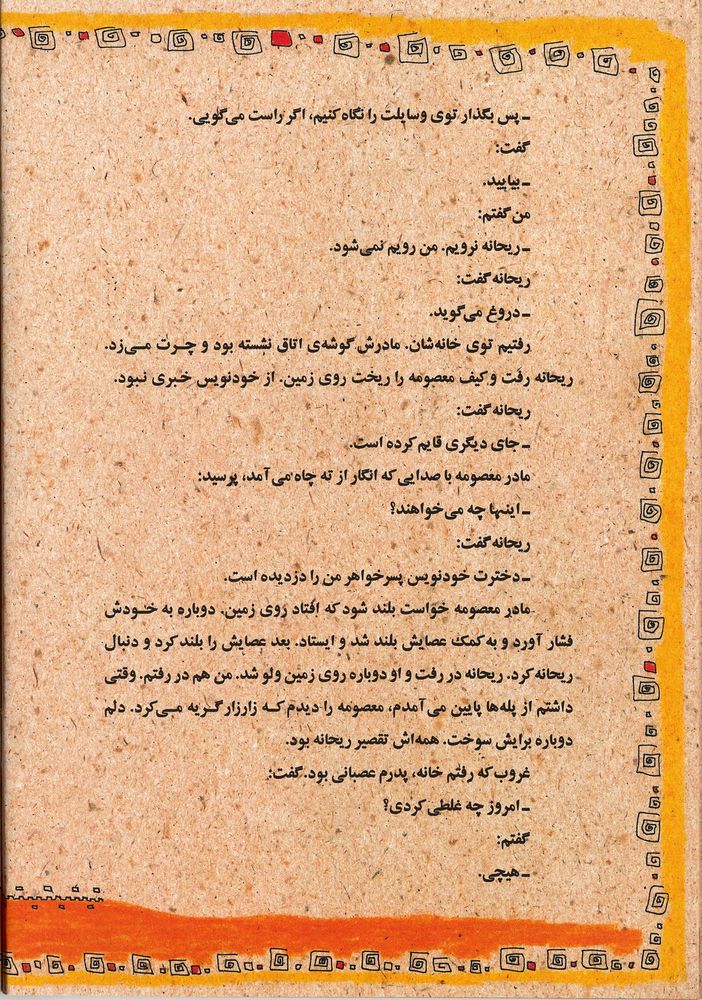 ـ پس بگذار توی وسایلت را نگاه کنیم، اگر راست می‌گویی.
گفت:
ـ بیایید.
من گفتم:
ـ ریحانه نرویم. من رویم نمی‌شود.
ریحانه گفت:
ـ دروغ می‌گوید.
رفتیم توی خانه‌شان. مادرش گوشه‌ی اتاق نشسته بود و چـرت مـی‌زد.
ریحانه رفت و کیف معصومه را ریخت روی زمین. از خودنویس خبری نبود.
ریحانه گفت:
ـ جای دیگری قایم کرده است.
مادر معصومه با صدایی که انگار از ته چاه می‌آمد، پرسید:
ـ اینها چه می‌خواهند؟
ریحانه گفت:
ـ دخترت خودنویس پسرخواهر من را دزدیده است.
مادر معصومه خواست بلند شود که افتاد روی زمین. دوباره به خـودش
فشار آورد و به کمک عصایش بلند شد و ایستاد. بعد عصایش را بلند کرد و دنبال
ریحانه کرد. ریحانه در رفت و او دوباره روی زمین ولو شد. من هم در رفتم. وقتی
داشتم از پله‌ها پایین می‌آمدم، معصومه را دیدم کـه زارزار گـریه مـی‌کرد. دلم
دوباره برایش سوخت. همه‌اش تقصیر ریحانه بود.
غروب که رفتم خانه، پدرم عصبانی بود. گفت:
ـ امروز چه غلطی کردی؟
گفتم:
ـ هیچی.